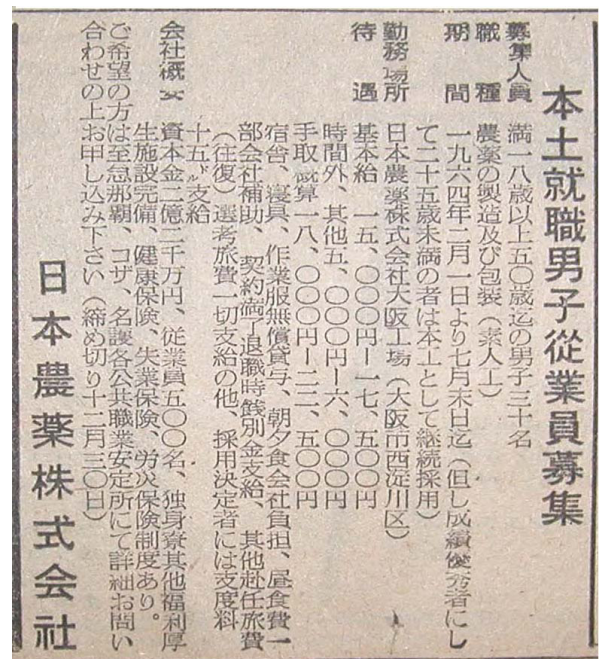 本土就職男子従業員募集
募集人員 満一八歳以上五〇歳迄の男子三十名
職種 農薬の製造及び包装（素人工）
期間 一九六四年二月一日より七月末日迄（但し成績優秀者にし
て二十五歳未満の者は本工として継続採用）
勤務場所 日本農薬株式会社大阪工場（大阪市西淀川区）
待遇 基本給 一五、〇〇〇円ー一七、五〇〇円
時間外、其他五、〇〇〇円ー六、〇〇〇円
手取概算一八、〇〇〇円ー二二、五〇〇円
宿舎、寝具、作業服無償貸与、朝夕食会社負担、昼食費一
部会社補助、契約満了退職時餞別金支給、其他赴任旅費
（往復）選考旅費一切支給の他、採用決定者には支度料
十五ドル支給
会社概要 資本金二億二千万円、従業員五〇〇名、独身寮其他福利厚
生施設完備、健康保険、失業保険、労災保険制度あり。
ご希望の方は至急那覇、コザ、名護各公共職業安定所にて詳細お問い
合わせの上お申し込み下さい（締め切り十二月三〇日）
日本農薬株式会社